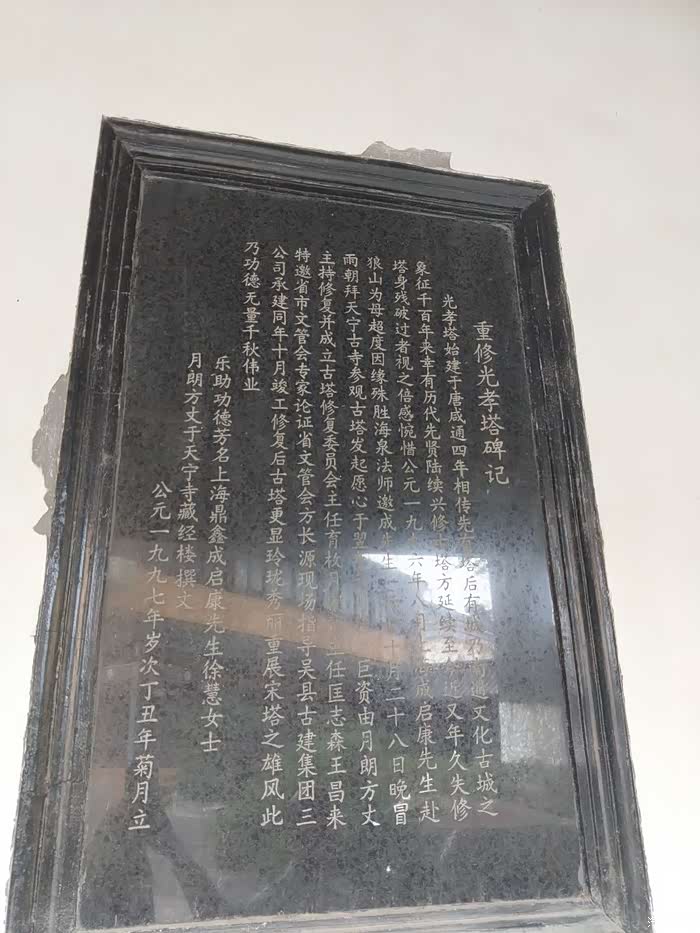 重修光孝塔碑记
光孝塔始建于唐咸通四年相传先有塔后有城乃南通文化古城之
象征千百年来幸有历代先贤陆续兴修古塔方延续至今近又年久失修
塔身残破过者视之倍感惋惜公元一九九六年八月 成启康先生赴
狼山为母超度因缘殊胜海泉法师邀成先生 十月二十八日晚冒
雨朝拜天宁古寺参观古塔发起愿心于翌 巨资由月朗方丈
主持修复并成立古塔修复委员会主任育枚 主任匡志森王昌来
特邀省市文管会专家论证省文管会方长源现场指导吴县古建集团三
公司承建同年十月竣工修复后古塔更显玲珑秀丽重展宋塔之雄风此
乃功德无量千秋伟业
乐助功德芳名上海鼎鑫成启康先生徐慧女士
月朗方丈于天宁寺藏经楼撰文
公元一九九七年岁次丁丑年菊月立